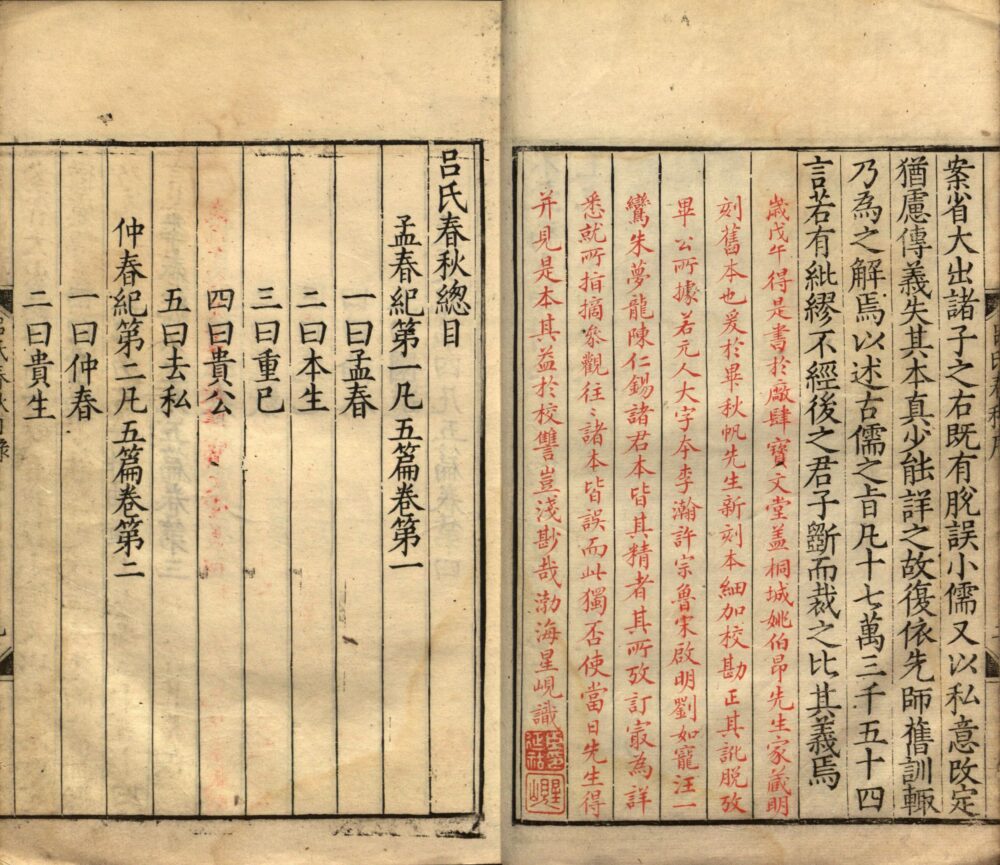 案省大出諸子之右既有脫誤小儒又以私意改定
猶慮傳義失其本真少能詳之故復依先師舊訓輒
乃為之解焉以述古儒之旨凡十七萬三千五十四
言若有紕繆不經後之君子斷而裁之比其義焉
歲戊午得是書於廠肆寶文堂蓋桐城姚伯昂先生家藏明
刻舊本也爰於畢秋帆先生新刻本細加校勘正其訛脫攷
畢公所據若元人大字本李瀚許宗魯宋啟明劉如寵汪一
鸞朱夢龍陳仁錫諸君本皆其精者其所攷訂㝡為詳
悉就所指摘叅觀往〻諸本皆誤而此獨否使當日先生得
并見是本其益於校讐豈淺尠哉渤海星峴識
呂氏春秋總目
孟春紀第一凡五篇卷第一
一曰孟春
二曰本生
三曰重己
四曰貴公
五曰去私
仲春紀第二凡五篇卷第二
一曰仲春
二曰貴生